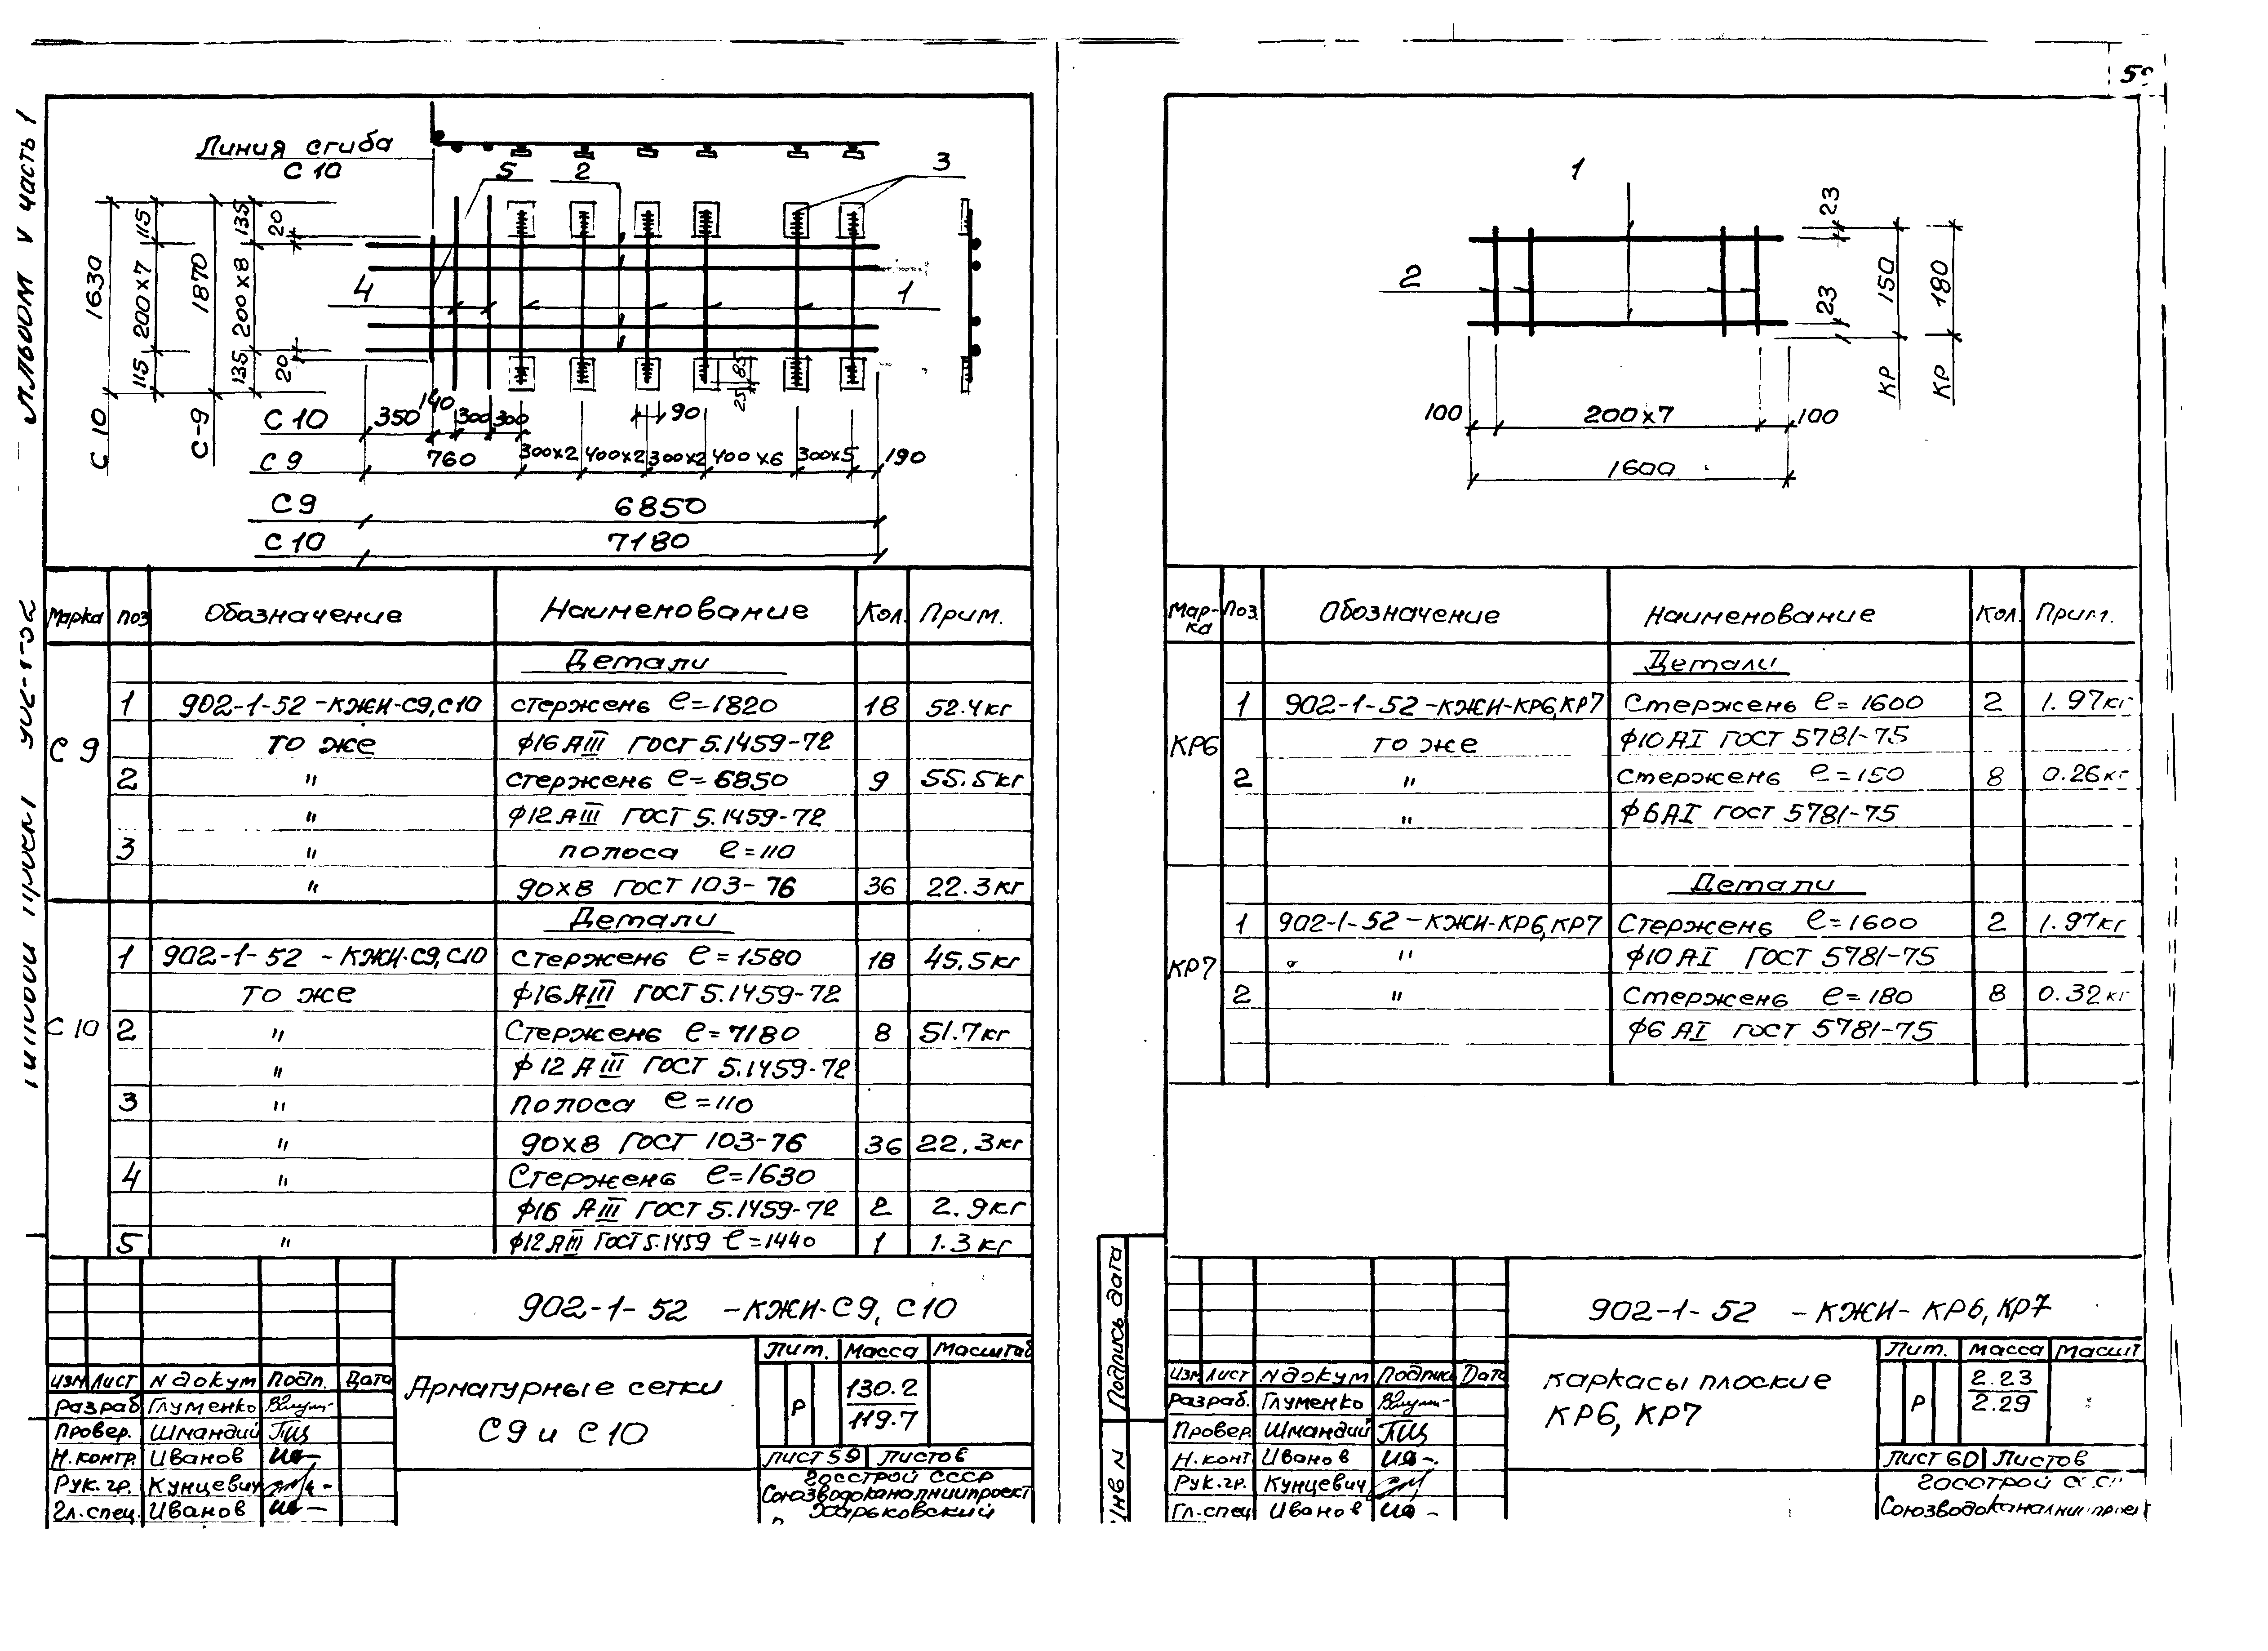 Альбом V часть 1
Линия сгиба
С 10
5 2 3
4 1
С 10 1630 115 200х7 115
С-9 1870 135 200х8 135
20 20
С 10 350 140 300 300 90
25 85
С 9 760 300х2 400х2 300х2 400х6 300х5 190
С 9 6850
С 10 7180
Марка поз Обозначение Наименование Кол. Прим.
Детали
С 9
1 902-1-52 -КЖИ-С9,С10 стержень ℓ=1820 18 52.4кг
то же ϕ16 АIII ГОСТ 5.1459-72
2 " стержень ℓ=6850 9 55.5кг
" ϕ12 АIII ГОСТ 5.1459-72
3 " полоса ℓ=110
" 90х8 ГОСТ 103-76 36 22.3кг
Детали
С 10
1 902-1-52 -КЖИ-С9,С10 стержень ℓ=1580 18 45.5кг
то же ϕ16 АIII ГОСТ 5.1459-72
2 " Стержень ℓ=7180 8 51.7кг
" ϕ12 АIII ГОСТ 5.1459-72
3 " Полоса ℓ=110
" 90х8 ГОСТ 103-76 36 22.3кг
4 " Стержень ℓ=1630
ϕ16 АIII ГОСТ 5.1459-72 2 2.9кг
5 " ϕ12 АIII ГОСТ 5.1459 ℓ=1440 1 1.3кг
902-1-52 -КЖИ-С9, С10
Лит. Масса Масштаб
Р 130.2
119.7
Арматурные сетки
С9 и С10
Лист 59 Листов
Госстрой СССР
Союзводоканалниипроект
Харьковский
Изм Лист N докум Подп. Дата
Разраб Глуменко
Провер. Шмандий
Н.контр. Иванов
Рук.гр. Кунцевич
Гл.спец. Иванов
1
2
23
23
КР 150
КР 180
100 200х7 100
1600
Мар-
ка Поз. Обозначение Наименование Кол. Прим.
Детали
КР6
1 902-1-52 -КЖИ-КР6,КР7 Стержень ℓ=1600 2 1.97кг
то же ϕ10АI ГОСТ 5781-75
2 " Стержень ℓ=150 8 0.26кг
" ϕ6АI ГОСТ 5781-75
Детали
КР7
1 902-1-52 -КЖИ-КР6,КР7 Стержень ℓ=1600 2 1.97кг
" ϕ10АI ГОСТ 5781-75
2 " Стержень ℓ=180 8 0.32кг
ϕ6 АI ГОСТ 5781-75
Подпись дата
Инв N
902-1-52 -КЖИ- КР6, КР7
Лит. Масса Масшт
Р 2.23
2.29
каркасы плоские
КР6, КР7
Лист 60 Листов
Госстрой
Союзводоканалниипроект
Изм Лист N докум Подпись Дата
Разраб. Глуменко
Провер. Шмандий
Н.конт Иванов
Рук.гр. Кунцевич
Гл.спец Иванов